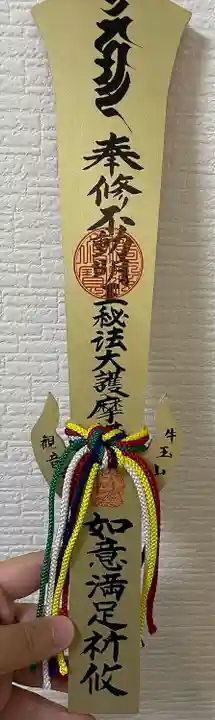 奉修不動明王秘法大護摩
如意満足祈攸
牛玉山
観音